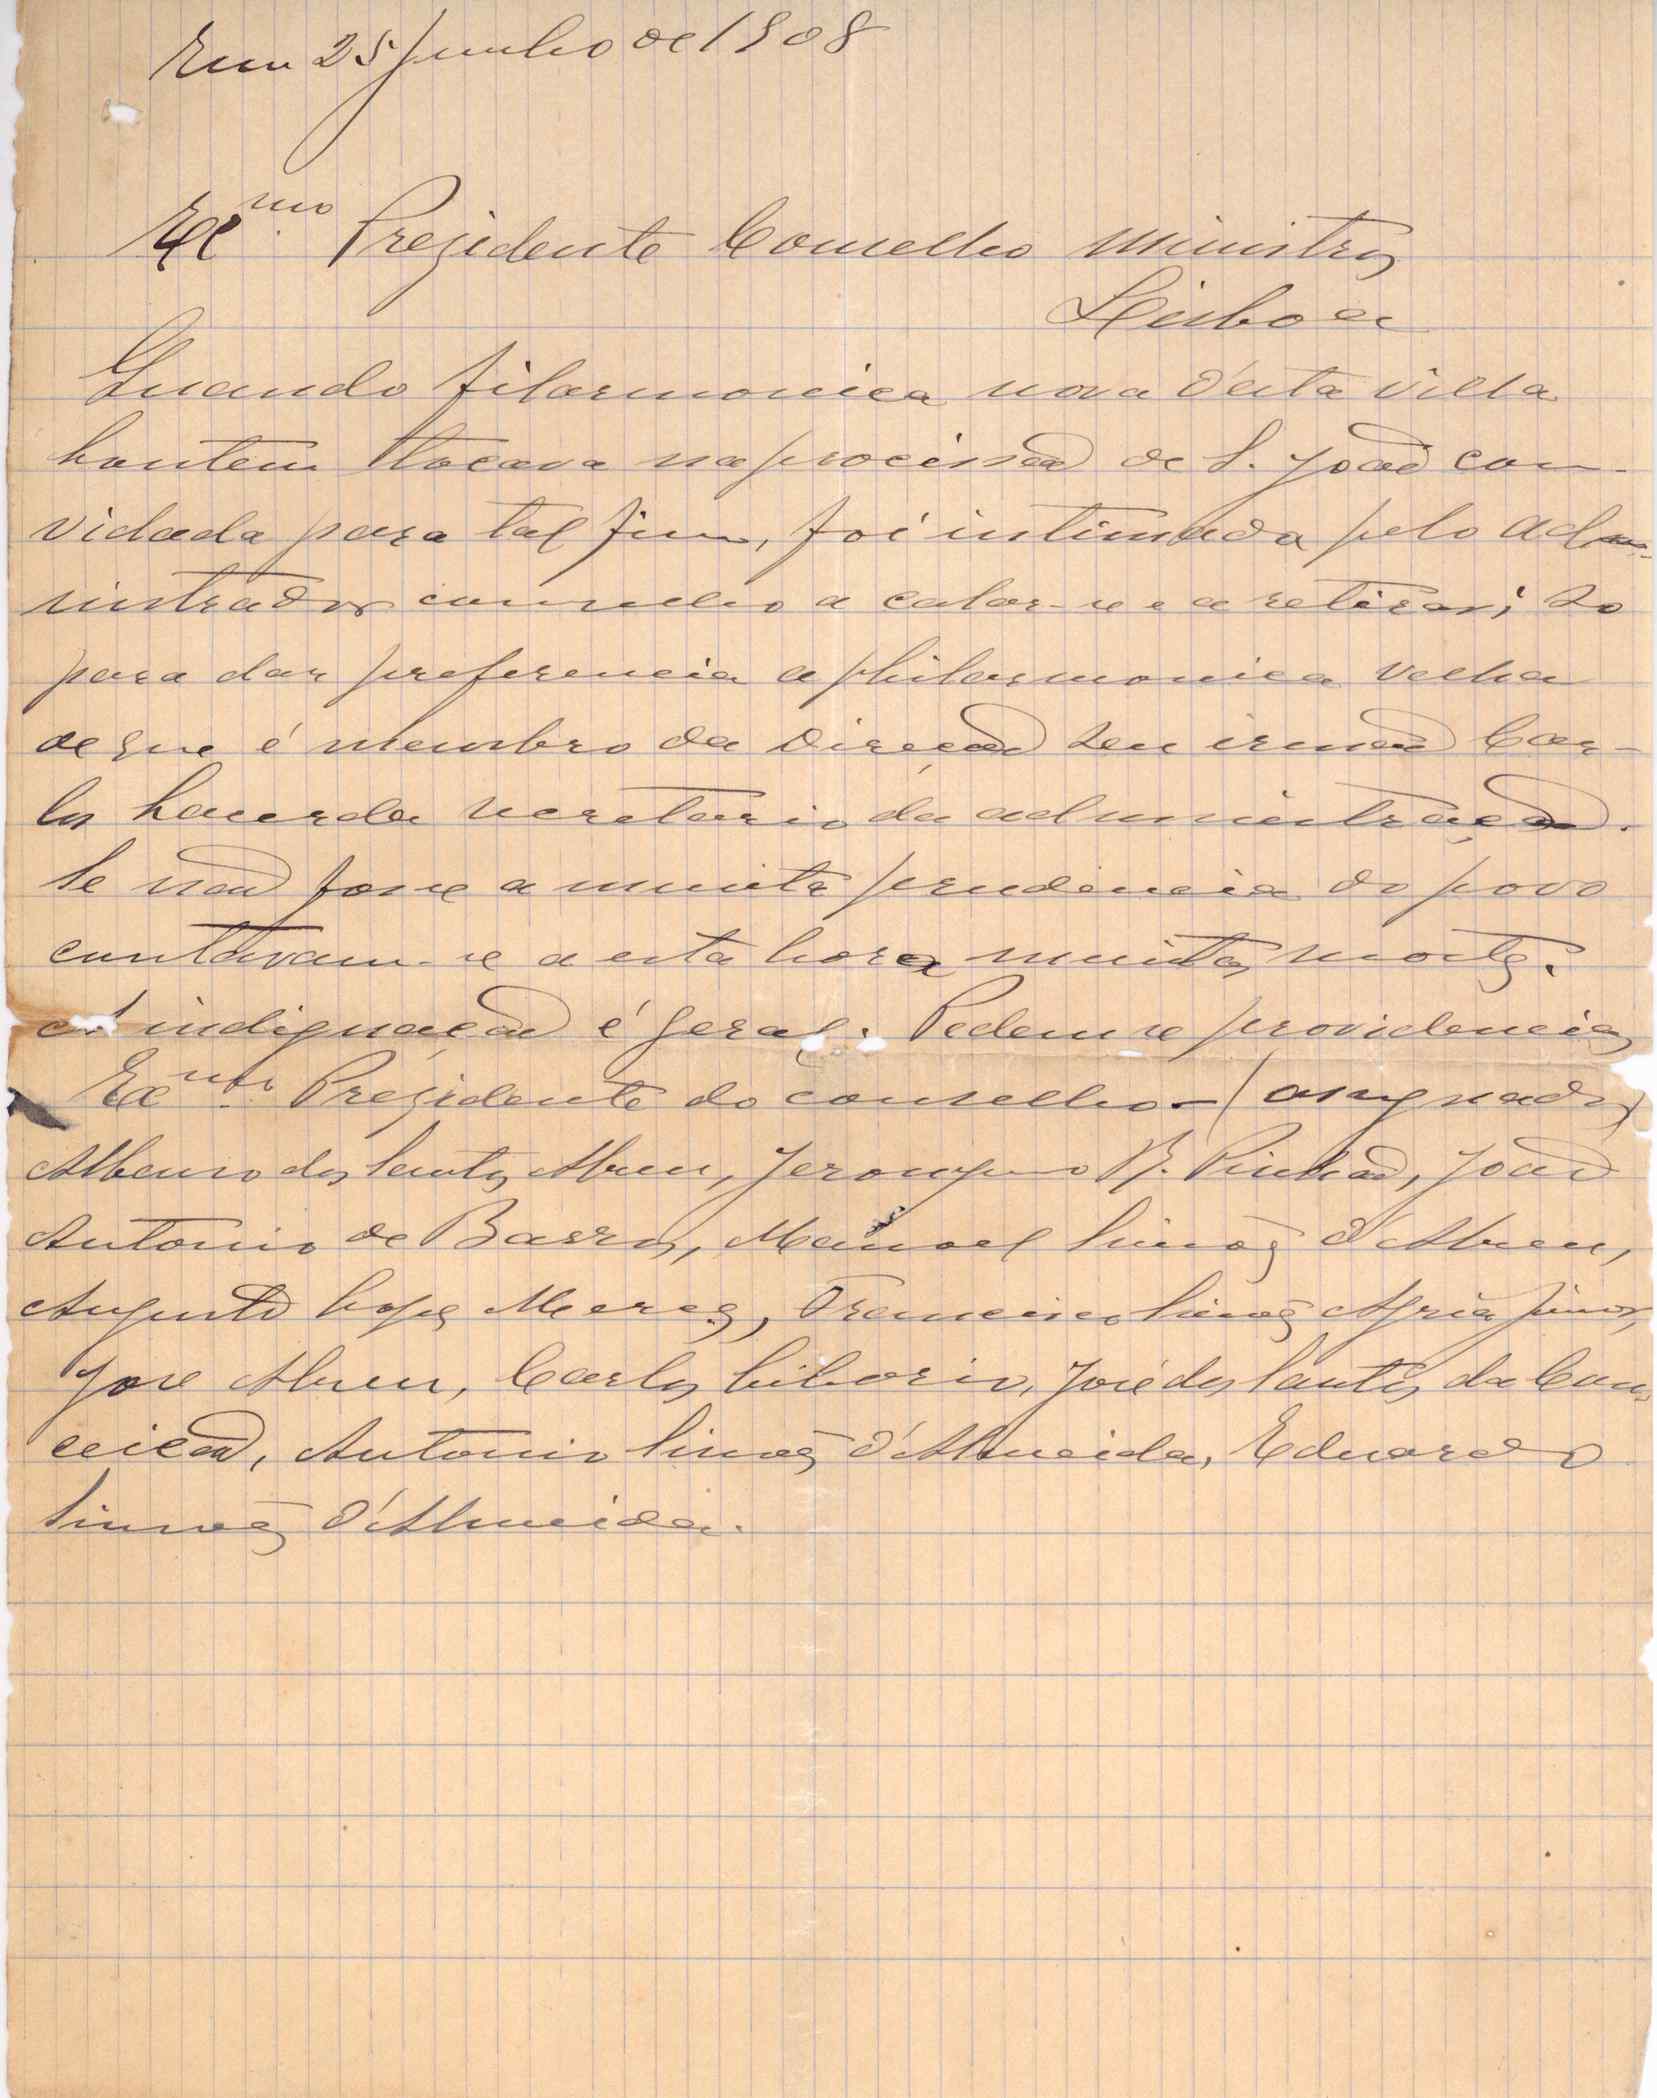 Em 25 Junho de 1908
Exmo Prezidente Conselho Ministros
Lisboa
Quando filarmonica nova d'esta villa
hontem tocava na procissão de S. João con-
vidada para tal fim, foi intimada pelo adm-
nistrador concelho a calar-se e a retirar; so
para dar preferencia a philarmonica velha
de que é membro da direcção seu irmão Car-
los Lacerda secretario da administração.
Se não fosse a muita prudencia do povo
contavam-se a esta hora muitas mortes.
A indignação é geral. Pedem-se providencias
Exmo Prezidente do conselho - (assignados)
Albano dos Santos Abreu, Jeronymo R. Pinhão, João
Antonio de Barros, Manoel Simões d'Abreu,
Augusto Lopes Mereg, Francisco Simões Agria Junior,
Jose Abreu, Carlos Liborio, José dos Santos da Con-
ceicão, Antonio Simões d'Almeida, Eduardo
Simões d'Almeida.